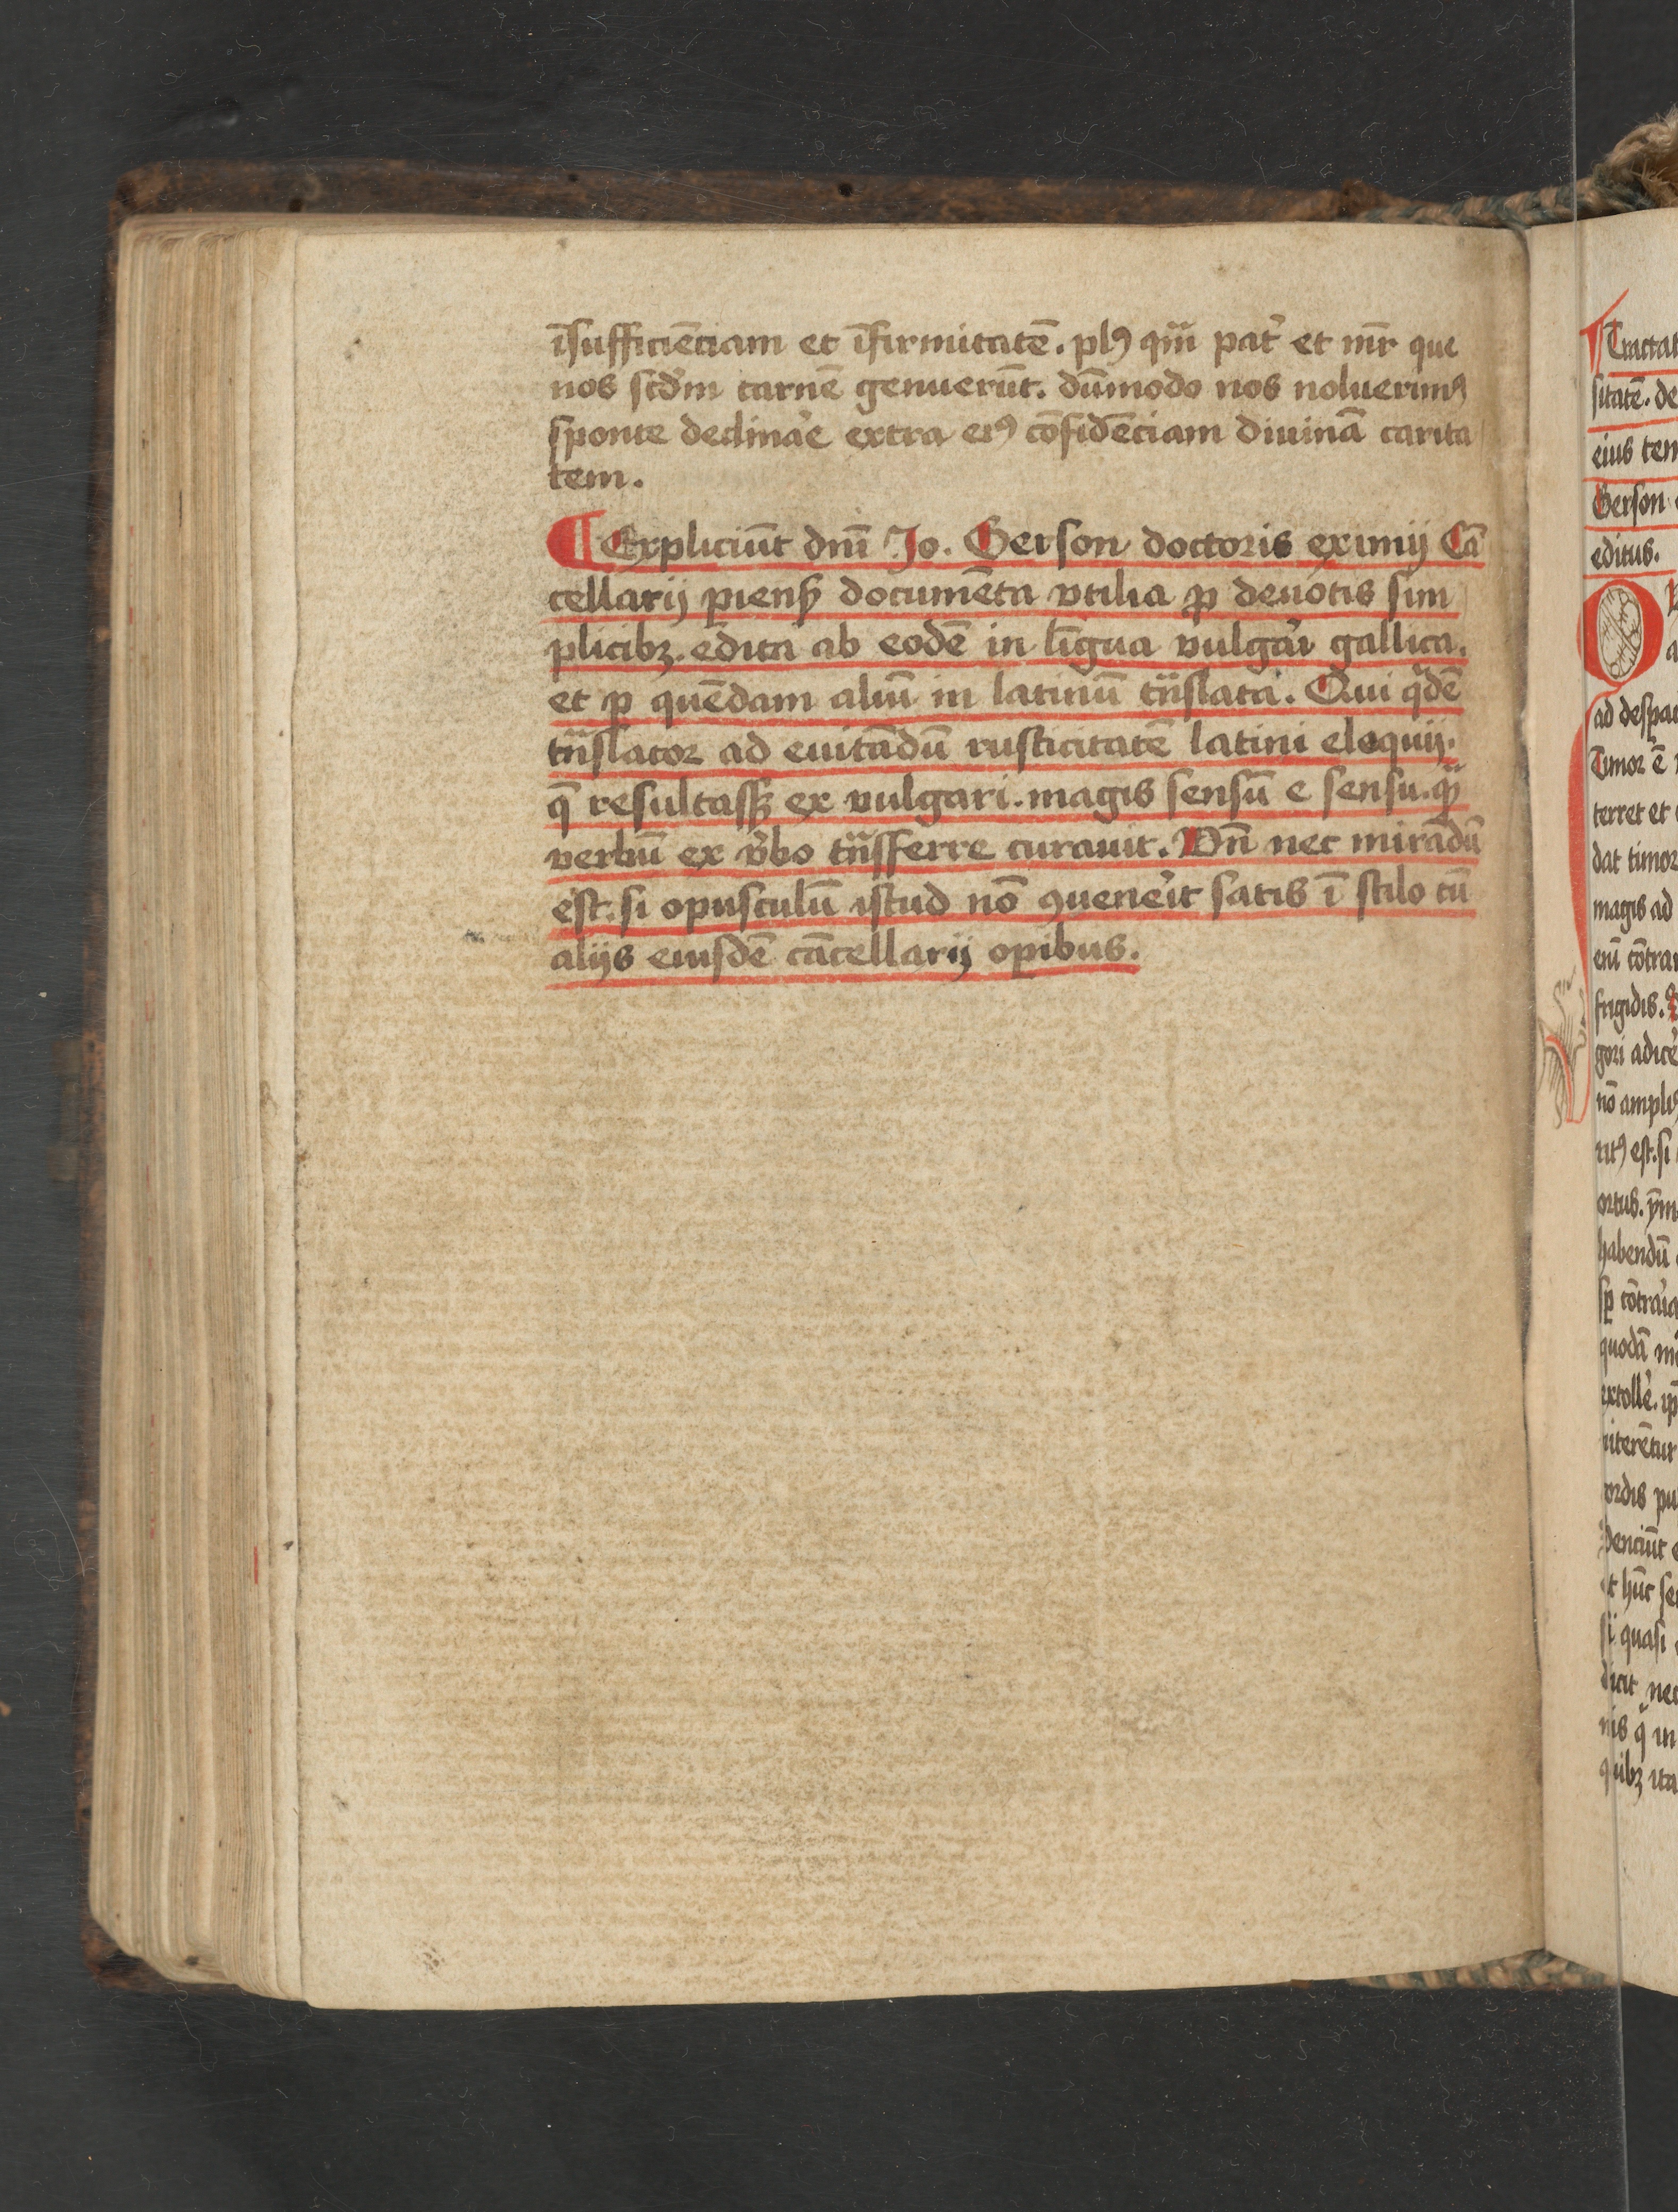 īsufficiēciam et īfirmitatē. plꝰ qm̄ pat̉ et mr̄ que
nos scd̓m carnē genuerūt. dūmodo nos noluerimꝰ
sponte declina̓e extra eiꝰ cōfidēciam diuinā carita
tem.
¶ Expliciūt dnī Jo. Gerson doctoris eximij Cā
cellarij pienꝭ documēta vtilia ꝓ deuotis sim
plicibꝫ. edita ab eodē in līgua vulga̓i gallica.
et ꝑ quēdam aliū in latinū tn̄slata. Qui qͥdē
tn̄slator ad euitādū rusticitatē latini eloquij.
q̄ resultassꝫ ex vulgari. magis sensū e sensu. qͣꝫ
verbū ex v̓bo tn̄sferre curauit. Vn̄ nec mirādū
est. si opusculū istud nō ꝯuene̓it satis ī stilo cū
alijs eiusdē cācellarij oꝑibus.
Tractat
sitatē. de
eius tem
Gerson
editus.
O
ad despa
Timor ē
terret et
dat timor
magis ad
eni̅ cōtrar
frigidis.
gori adice̓
nō ampliꝰ
ritꝰ est. si
ortus.
habendū
sꝑ cōtra̓ia
quodā
extolle̓.
niterētur
ordis pu
denciūt
et hūc se
si quasi
dicit nec
nis q̄ in
quibꝫ ita